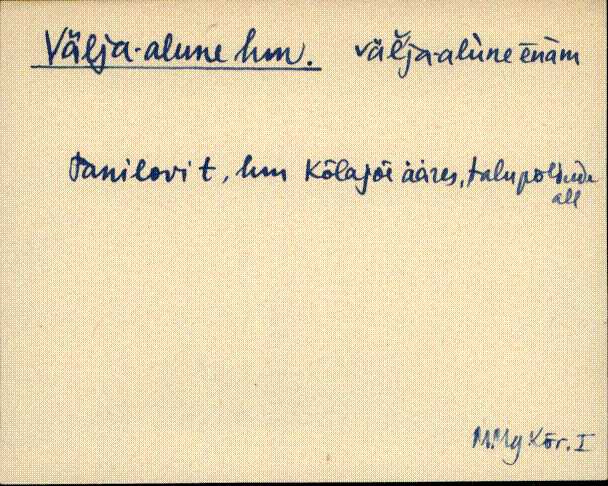 Välja-alune hm. välja-alune ēnäm
Tanilovi t, hm Kõlajõe ääres, talu põldude
all
M.Mg Kör. I